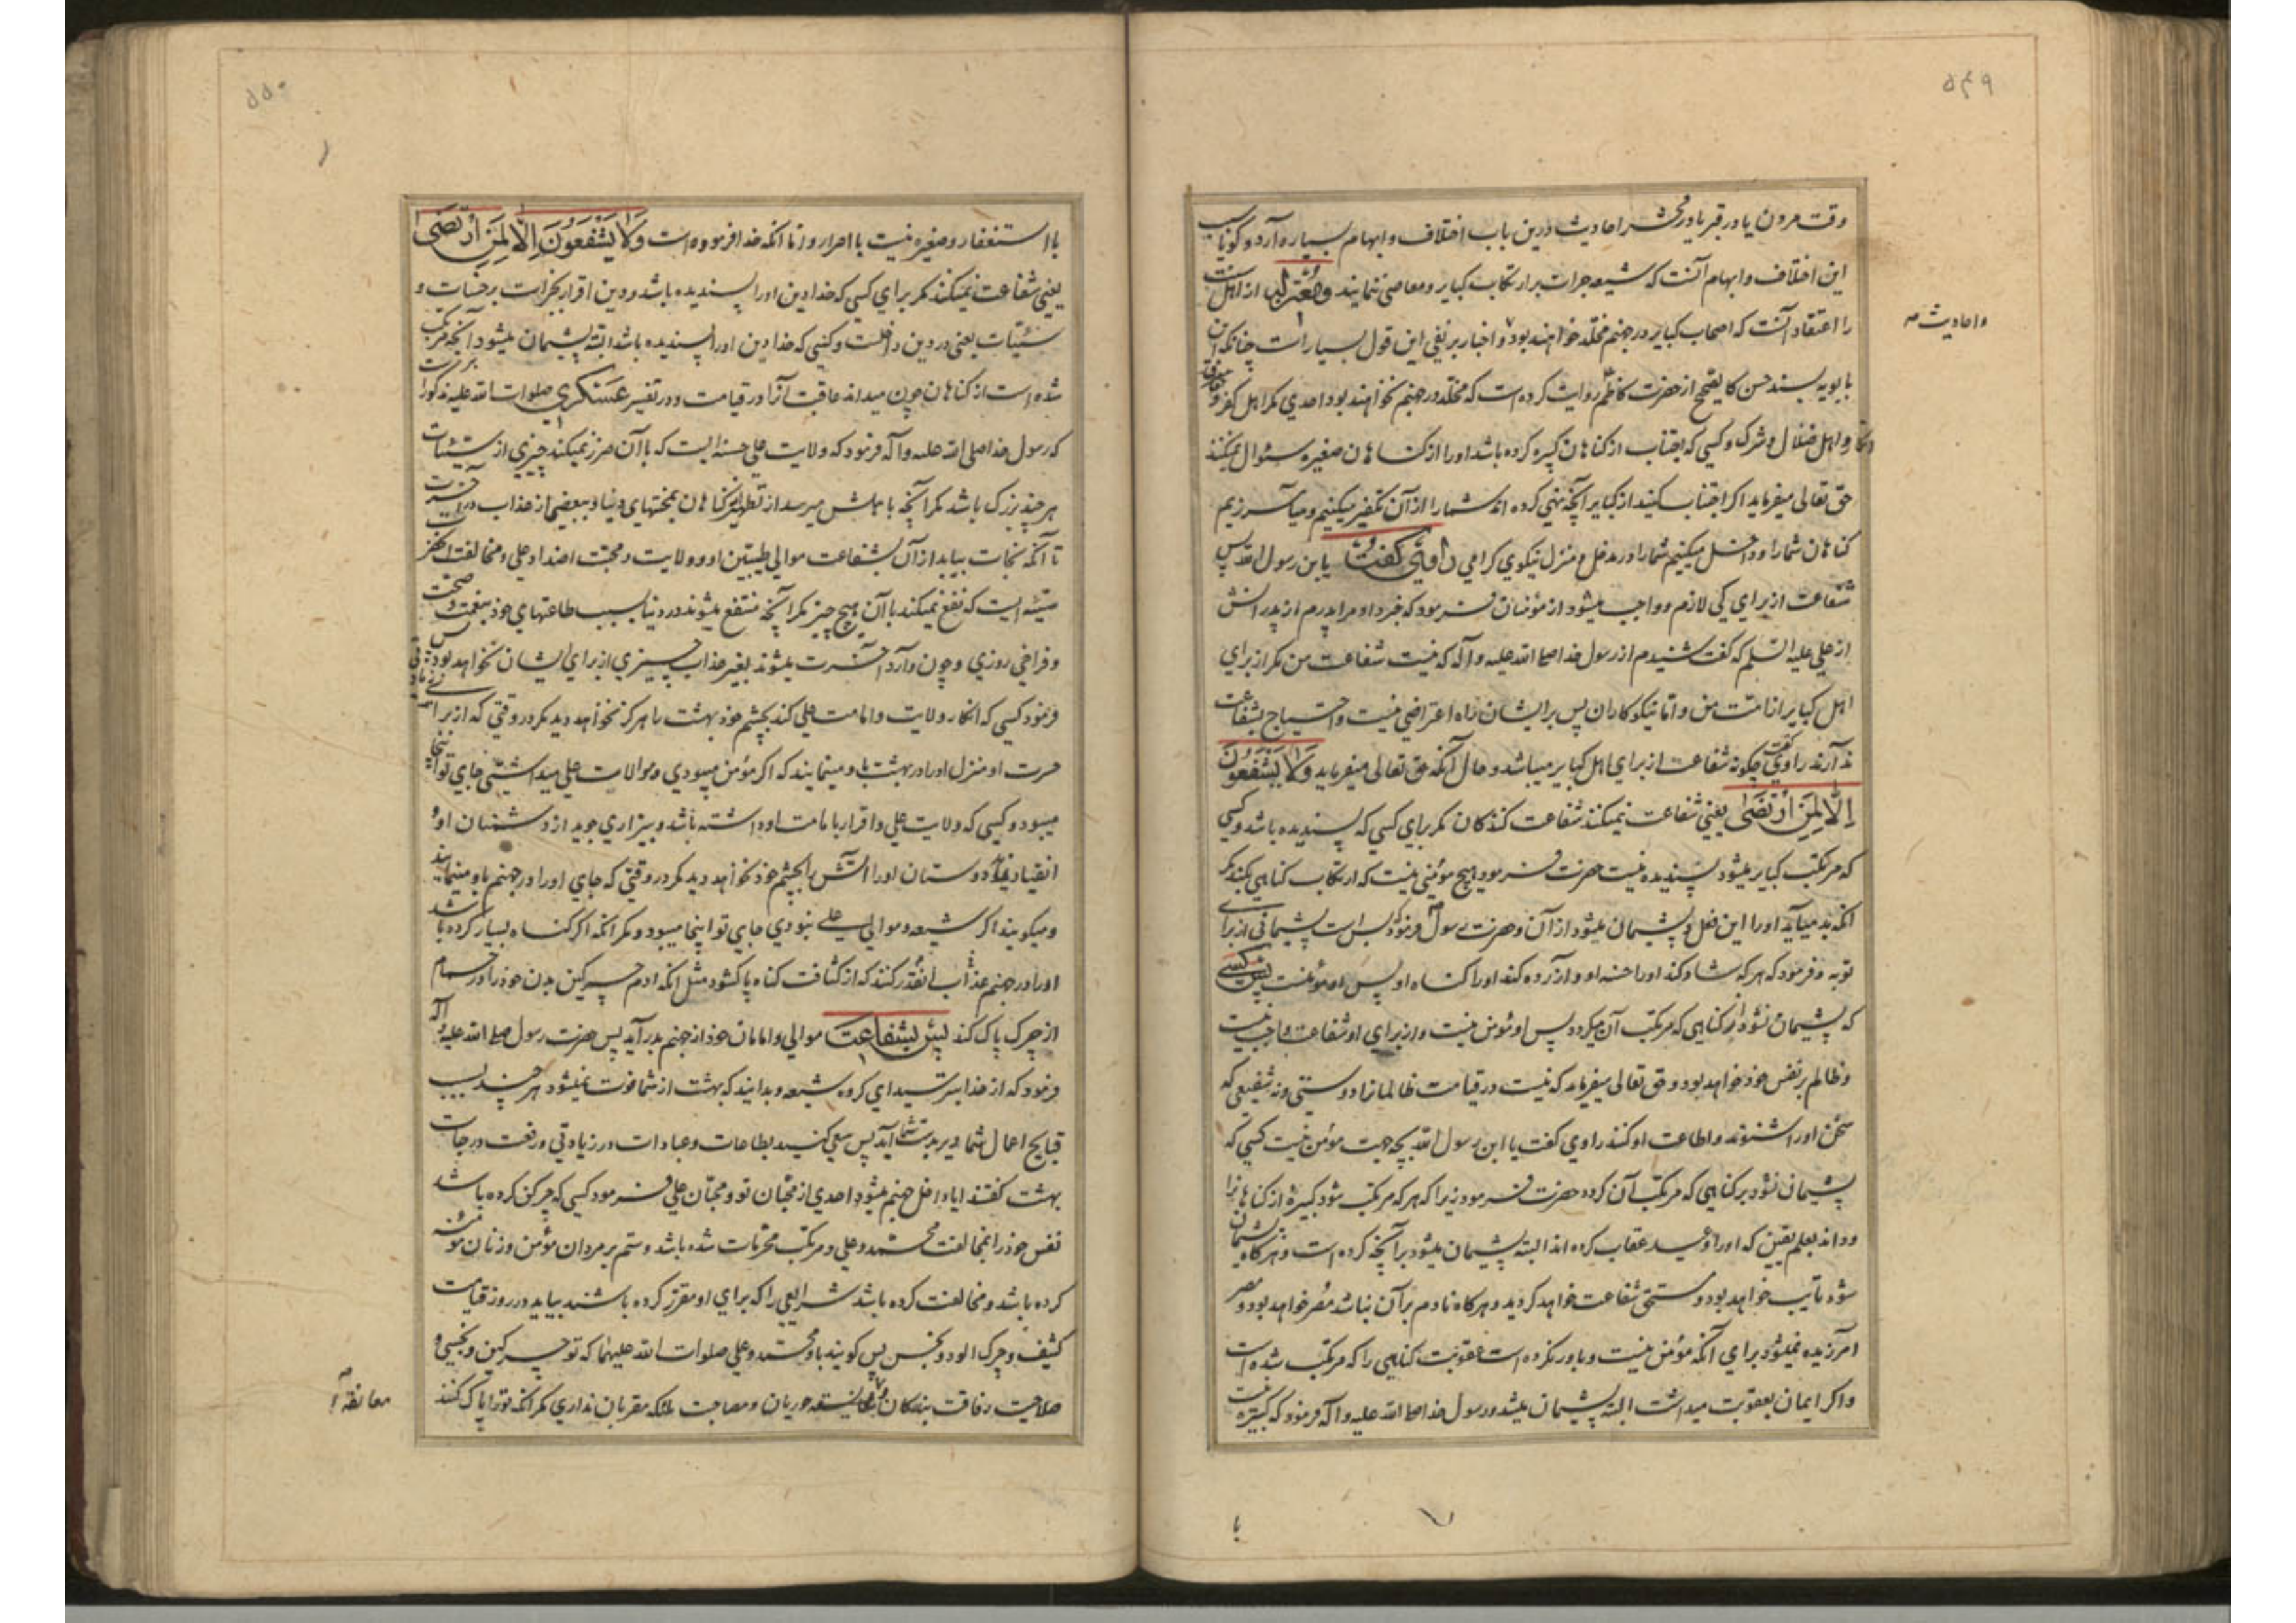 ۵۴۹
وقت مردن یا در قبر یا در محشر احادیث درین باب اختلاف و ابهام بسیار دارد و گویا سبب
این اختلاف و ابهام آنست که شیعه جرات بر ارتکاب کبایر و معاصی ننمایند و معتزله از اهل سنت
واحادیث صه
را اعتقاد آنست که اصحاب کبایر در جهنم مخلد خواهند بود و اخبار بر نفی این قول بسیار است چنانکه ابن
بابویه بسند حسن کالصحیح از حضرت کاظم روایت کرده است که مخلد در جهنم نخواهند بود احدی مکر اهل کفر و
و اهل ضلال و شرک و کسی که اجتناب از کناهان کبیره کرده باشد او را از کناهان صغیره سئوال نمیکنند
حق تعالی میفرماید اکر اجتناب کنید از کبایر آنچه نهی کرده اند شما را از آن تکفیر میکنیم و میآمرزیم
کناهان شما را و داخل میکنیم شما را در مدخل و منزل نیکوی کرامی راوی کفت یا بن رسول الله پس
شفاعت از برای کی لازم و واجب میشود از مؤمنان فرمود که خبر داد مرا پدرم از پدرانش
از علی علیه السلم که کفت شنیدم از رسول خدا صلی الله علیه و آله که نیست شفاعت من مکر از برای
اهل کبایر از امت من و اما نیکوکاران پس بر ایشان راه اعتراضی نیست و احتیاج بشفاعت
ندارند راوی کفت چکونه شفاعت از برای اهل کبایر میباشد و حال آنکه حق تعالی میفرماید وَلَا یَشْفَعُونَ
اِلَّا لِمَنِ ارْتَضَی یعنی شفاعت نمیکنند شفاعت کنندکان مکر برای کسی که پسندیده باشد و کسی
که مرتکب کبایر میشود پسندیده نیست حضرت فرمود هیچ مؤمنی نیست که ارتکاب کناهی بکند مکر
انکه بد میآید او را این فعل و پشیمان میشود از آن و حضرت رسول فرمود که بس است پشیمانی از برای
توبه و فرمود که هر که شاد کند او را حسنه او و آزرده کند او را کناه او پس او مؤمنست پس کسی
که پشیمان نشود از کناهی که مرتکب آن میکردد پس او مؤمن نیست و از برای او شفاعت واجب نیست
و ظالم بر نفس خود خواهد بود و حق تعالی میفرماید که نیست در قیامت ظالمانرا دوستی و نه شفیعی که
سخن او را شنوند و اطاعت او کنند راوی کفت یا ابن رسول الله بچه جهت مؤمن نیست کسی که
پشیمان نشود بر کناهی که مرتکب آن کردد حضرت فرمود زیرا که هر که مرتکب شود کبیرهٔ از کناهانرا
و داند بعلم یقین که او را وعید عقاب کرده اند البته پشیمان میشود بر آنچه کرده است و هرکاه پشیمان
شود تایب خواهد بود و مستحق شفاعت خواهد کردید و هرکاه نادم بر آن نباشد مصر خواهد بود و مصر
آمرزیده نمیشود برای آنکه مؤمن نیست و باور نکرده است عقوبت کناهی را که مرتکب شده است
و اکر ایمان بعقوبت میداشت البته پشیمان میشد و رسول خدا صلی الله علیه و آله فرمود که کبیره نیست
با
۵۵۰
با استغفار و صغیره نیست با اصرار و اما انکه خدا فرموده است وَلَا یَشْفَعُونَ اِلَّا لِمَنِ ارْتَضَی
یعنی شفاعت نمیکنند مکر برای کسی که خدا دین او را پسندیده باشد و دین اقرار بجزاست بر حسنات و
سیئات یعنی در دین داخلست و کسی که خدا دین او را پسندیده باشد البته پشیمان میشود از آنچه مرتکب
شده است از کناهان چون میداند عاقبت آنرا در قیامت و در تفسیر عسکری صلوات الله علیه مذکور است
که رسول خدا صلی الله علیه و آله فرمود که ولایت علی حسنه ایست که با آن ضرر نمیکند چیزی از سیئات
هر چند بزرک باشد مکر آنچه باهلش میرسد از تطهیر کناهان بمحنتهای دنیا و ببعضی از عذاب در آخرت
تا آنکه نجات بیابد از آن بشفاعت موالی طیبین او و ولایت و محبت اضداد علی و مخالفت انحضرت
سیئه ایست که نفع نمیکند با آن هیچ چیز مکر آنچه منتفع میشوند در دنیا بسبب طاعتهای خود بنعمت و صحت
و فراخی روزی و چون وارد آخرت میشوند بغیر عذاب چیزی از برای ایشان نخواهد بود پس
فرمود کسی که انکار ولایت و امامت علی کند بچشم خود بهشت را هرکز نخواهد دید مکر در وقتی که از برای
حسرت او منزل او را در بهشت باو مینمایند که اکر مؤمن میبودی و موالات علی میداشتی جای تو اینجا
میبود و کسی که ولایت علی و اقرار بامامت او داشته باشد و بیزاری جوید از دشمنان او و
انقیاد نماید دوستان او را آتش را بچشم خود نخواهد دید مکر در وقتی که جای او را در جهنم باو مینمایند
و میکویند اکر شیعه و موالی علی نبودی جای تو اینجا میبود و مکر انکه اکر کناه بسیار کرده باشد
او را در جهنم عذاب انقدر کنند که از کثافت کناه پاک شود مثل انکه ادم چرکین بدن خود را در حمام
از چرک پاک کند پس بشفاعت موالی و امامان خود از جهنم بدر آید پس حضرت رسول صلی الله علیه و اله
فرمود که از خدا بترسید ای کروه شیعه و بدانید که بهشت از شما فوت نمیشود هر چند بسبب
قبایح اعمال شما دیر بدست شما آید پس سعی کنید بطاعات و عبادات در زیادتی و رفعت درجات
بهشت کفتند ایا داخل جهنم میشود احدی از محبان تو و محبان علی فرمود کسی که چرکین کرده باشد
نفس خود را بمخالفت محمد و علی و مرتکب محرمات شده باشد و ستم بر مردان مؤمن و زنان مؤمنه
کرده باشد و مخالفت کرده باشد شرایعی را که برای او مقرر کرده باشند بیاید در روز قیامت
کثیف و چرک الود و نجس پس کویند باو محمد و علی صلوات الله علیهما که تو چرکین و نجسی و
صلاحیت رفاقت بندکان و معانقه حوریان و مصاحبت ملائکه مقربان نداری مکر آنکه تو را پاک کنند
معانقه